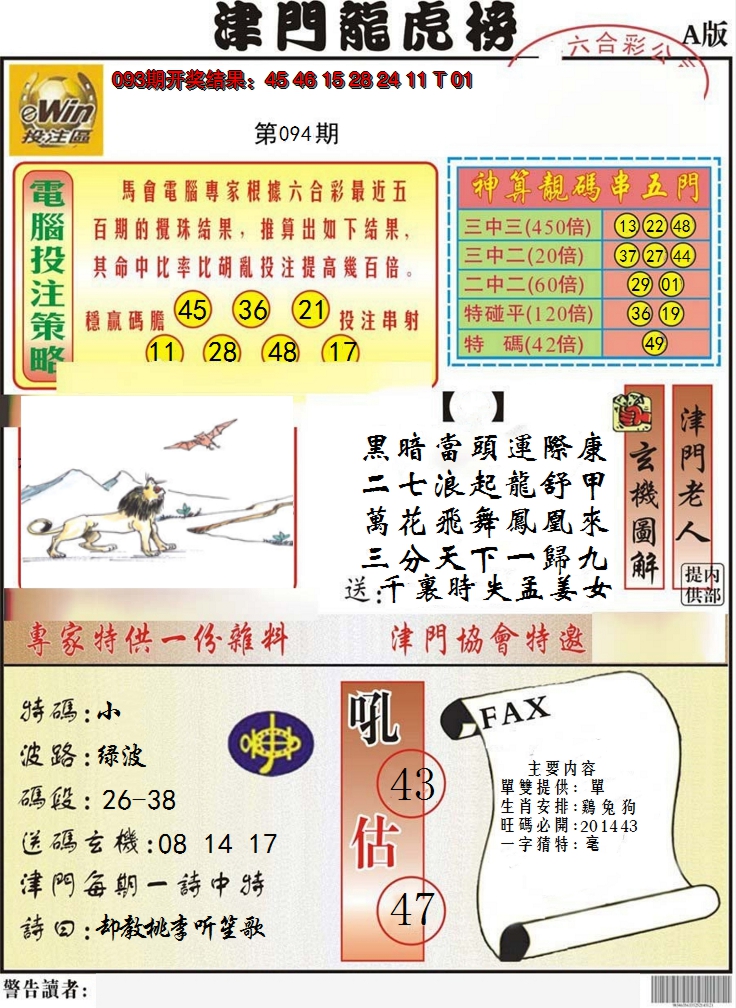 津門龍虎榜
六合彩公
A版
eWin
投注區
093期开奖结果：45 46 15 28 24 11 T 01
第094期
電腦投注策略
馬會電腦專家根據六合彩最近五
百期的攪珠结果，推算出如下结果，
其命中比率比胡亂投注提高幾百倍。
穩贏碼膽 45 36 21 投注串射
11 28 48 17
神算靚碼串五門
三中三(450倍) 13 22 48
三中二(20倍) 37 27 44
二中二(60倍) 29 01
特碰平(120倍) 36 19
特 碼(42倍) 49
【 】
黑暗當頭運際康
二七浪起龍舒甲
萬花飛舞鳳凰來
三分天下一歸九
送:千裏時失孟姜女
玄機圖解
津門老人
内部
提供
專家特供一份雜料
津門協會特邀
特碼:小
波路:绿波
碼段:26-38
送碼玄機:08 14 17
津門每期一詩中特
詩曰:却教桃李听笙歌
吼
43
估
47
FAX
主要内容
單雙提供：單
生肖安排:鷄兔狗
旺碼必開:201443
一字猜特：毫
警告讀者：